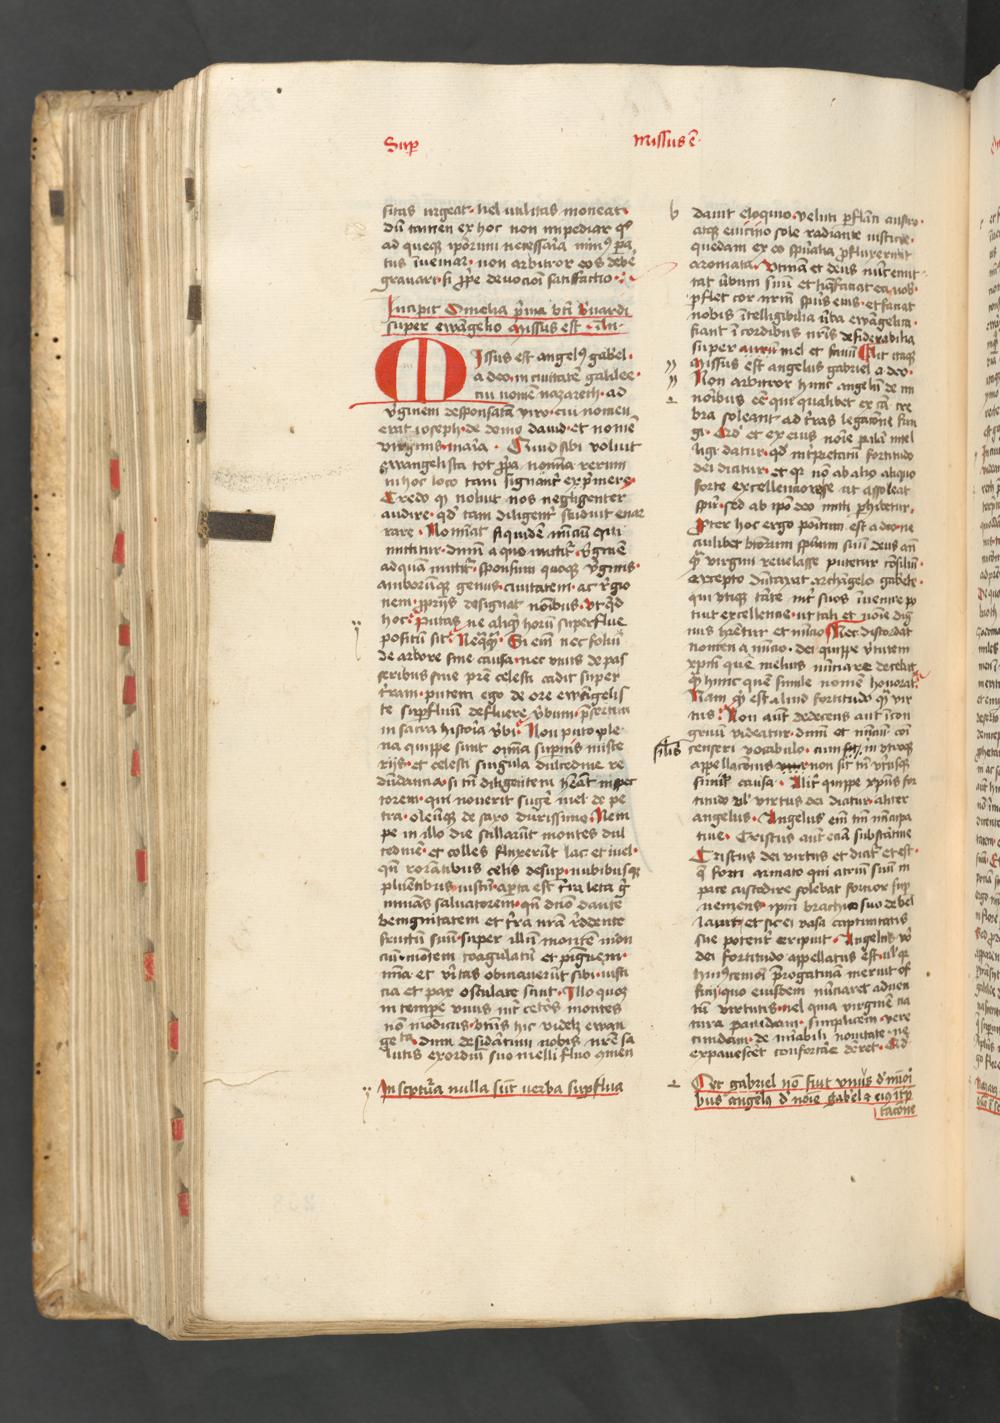 Sup̄
Missus ē
sitas urgeat · uel utilitas moneat ·
dū tamen ex hoc non impediar q̄
ad queq̄ ip̄orum necessaria min⁹ pa
tus īueniar · non arbitror eos debē
grauari · si p̄p̄e deuocioī satisfactio ·
Incipit Omelia p̄ma bt̄i b̄nardi
super ewāgelio Missus est · ...
Missus est angel⁹ gabel ·
a deo · in ciuitatē galilee ·
cui nomē nazareth · ad
v̄ginem desponsatā viro · cui nomen
erat ioseph · de domo dauid · et nomē
virginis · maria · Quid sibi voluit
ewangelista tot p̄pa nomīa rerum
in hoc loco tam signant͛ exp̄mere ·
Credo q̄ noluit nos negligenter
audire · qd̄ tam diligent͛ studuit enar
rare · Nomīat siquidē nūciū qui
mittitur · dnm̄ a quo mittit͛ · v̄ginē
ad quam mittit͛ · sponsum quoq̄ v̄ginis ·
amborūq̄ genus · ciuitatem · ac r̄gio
nem · p̄prijs designat noībus · vt qd̄
hoc · Putas ne aliq̄ horū superflue
positū sit · Neq̄q̄ · Si eni͞ nec foliū
de arbore sine causa · nec vnus de pas
seribus sine pr̄e celesti cadit super
t̄ram · putem ego de ore ewāgelis
te sup̄fluū defluere v̄bum · p̄sertim
in sacra histoīa v̄bi · Non puto · ple
na quippe sunt om̄ia supnis miste
rijs · et celesti singula dulcedine re
dūdancia · si tn̄ diligentē hēāt inspec
torem · qui nouerit sugē mel de pe
tra · oleūq̄ de saxo durissimo · Nem
pe in illo die stillarūt montes dul
cedinē · et colles fluxerūt lac et mel ·
qn̄ rorātibus celis desup̄ · nubibusq̄
pluētibus iustū · apta est t̄ra leta ḡ
minās saluatorem · qn̄ dn̄o dante
benignitatem et t̄ra nr̄a r̄ddente
fructū suū · super illū montē mon
ciū · montem coagulatū et piguem ·
mīa et v̄itas obuiauerūt sibi · iusti
cia et pax osculate sunt · Illo quoq̄
in tempe vnus int͛ cetos montes
nō modicus · bt̄us hic videlz ewan
gelista · dum desidātum nobis nr̄e sa
lutis exordiū suo melli fluo omen
In sc̄ptūra nulla sūt verba sup̄flua
b dauit eloquio · veluti p̄flāti austro ·
atq̄ e vicino sole radiante iusticie ·
quedam ex eo spūalia p̄fluxerunt
aromata · Vtinā et deus nūc emit
tat v̄bum suū et liq̄faciat ea nob̄ ·
p̄flet cor nrm̄ spūs eius · et faciat
nobis ītelligibilia v̄ba ewāgelica ·
fiant ī cordibus nr̄is desiderabilia
super aurū mel et fauū · Ait itaq̄
Missus est angelus gabriel a deo ·
Non arbitror hunc angelū de mi
noībus eē qui qualibet ex cā cre
bra soleant ad t̄ras legacōne fun
gi · Qd̄ et ex eius noīe palā intel
ligi datur · qd̄ int̄pretatū fortitudo
dei dicitur · et q̄ nō ab alio aliquo
forte excellenciore se ut assoleat
spū · sed ab ip̄o deo mitti p̄hibetur ·
Pter hoc ergo positum est a deo · ne
cuilibet btōrum spūum suū deus an̄
q̄ virgini reuelasse putetur cōsiliū ·
excepto dūtaxat archāgelo gabriele ·
qui vtiq̄ tāte int͛ suos īuenire po
tuit excellencie · ut tali et noīe dig
nus hr̄etur et nūcio · Nec discordat
nomen a nūcio · dei quippe v̄tutem
xp̄m quē melius nūciare decebat
q̄ hunc quē simile nomen honorat ·
Nam q̄ est aliud fortitudo q̄ vir
tus · Non aūt dedecens aut īcon
gruū videatur · dnm̄ et nūciū cōi
censeri vocabulo · cum silis in vtroq̄
silis
appellacōnis non sit tn̄ vtriusq̄
similis causa · Alit͛ quippe xp̄us for
titudo ul̄ virtus dei dicitur · aliter
angelus · Angelus eni͞ tm̄ nūcupa
tiue · Cristus aut͛ eciā substātiue
Cristus dei virtus et dicit͛ et est ·
q̄ forti armato qui atriū suū in
pace custodire solebat forcior sup̄
ueniens · ip̄m brachio suo debel
lauit · et sic ei vasa captiuitatis
sue potent͛ eripuit · Angelus v̄o
dei fortitudo appellatus est · ul̄ q̄
huiuscemōi p̄rogatiuā meruit of
ficij · quo eiusdem nūciaret aduen
tū virtutis · uel quia virginē na
tura pauidam · simplicem · vere
cundam · de mirabili nouitate · ne
expauescēt confortare deret · Qd̄
Qr̄ gabriel nō fuit vnus d̄ mīoī
bus angelis d̄ noīe gabēl ⁊ ei⁹ it̄p
tacōne